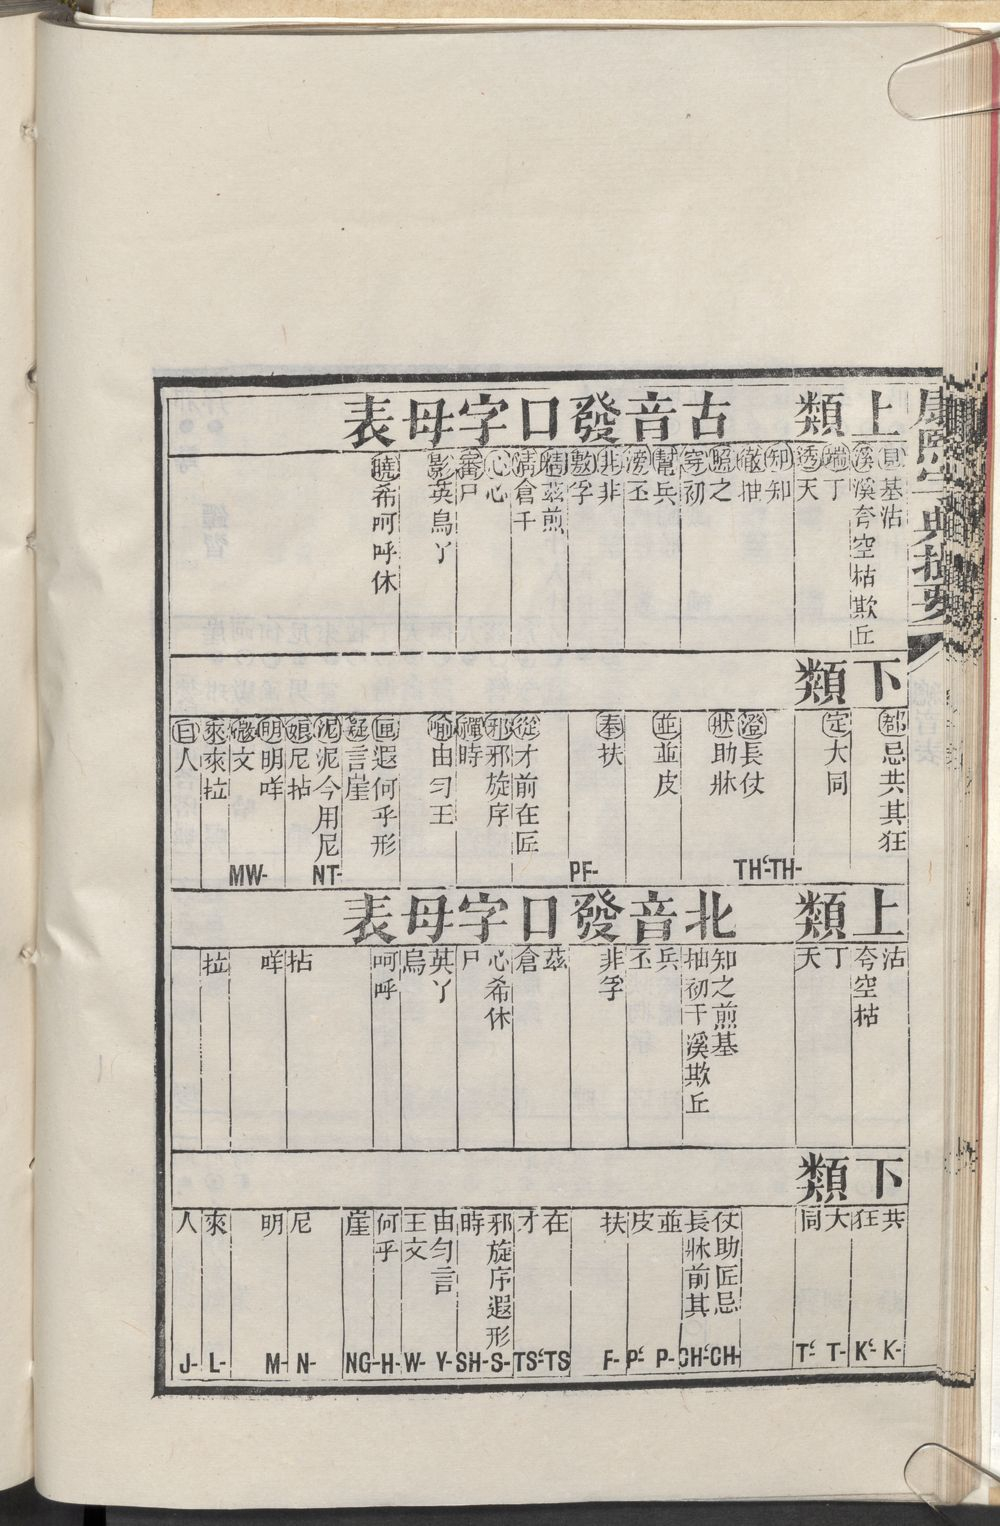 康熙字典撮要
上類 古音發口字母表
見基沽
溪溪夸空枯欺丘
端丁
透天
知知
徹抽
照之
穿初
幫兵
滂丕
非非
敷孚
精茲煎
清倉千
心心
審尸
影英烏丫
曉希呵呼休
下類
忌共其狂
定大同
澄長仗
牀助牀
並並皮
奉扶
從才前在匠
邪邪旋序
禪時
喻由匀王
匣遐何乎形
疑言崖
泥泥今用尼
娘尼拈
明明咩
微文
來來拉
日人
TH- TH‘- PF- NT- MW-
上類 北音發口字母表
沽
夸空枯
丁
天
知之煎基
抽初千溪欺丘
兵
丕
非孚
茲
倉
心希休
尸
英丫
烏
呵呼
拈
咩
拉
下類
共
狂
大
同
仗助匠忌
長牀前其
並
皮
扶
在
才
邪旋序遐形
時
由匀言
王文
何乎
崖
尼
明
來
人
K- K‘- T- T‘- CH- CH‘- P- P‘- F- TS TS‘- S- SH- Y- W- H- NG- N- M- L- J-